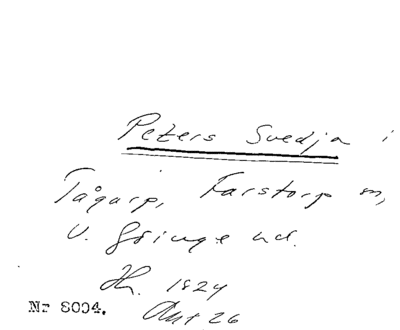 Peters Svedja i
Tågarp, Farstorp sn,
V. Göinge hd.
Jh. 1824
Akt 26
Nr 8004.